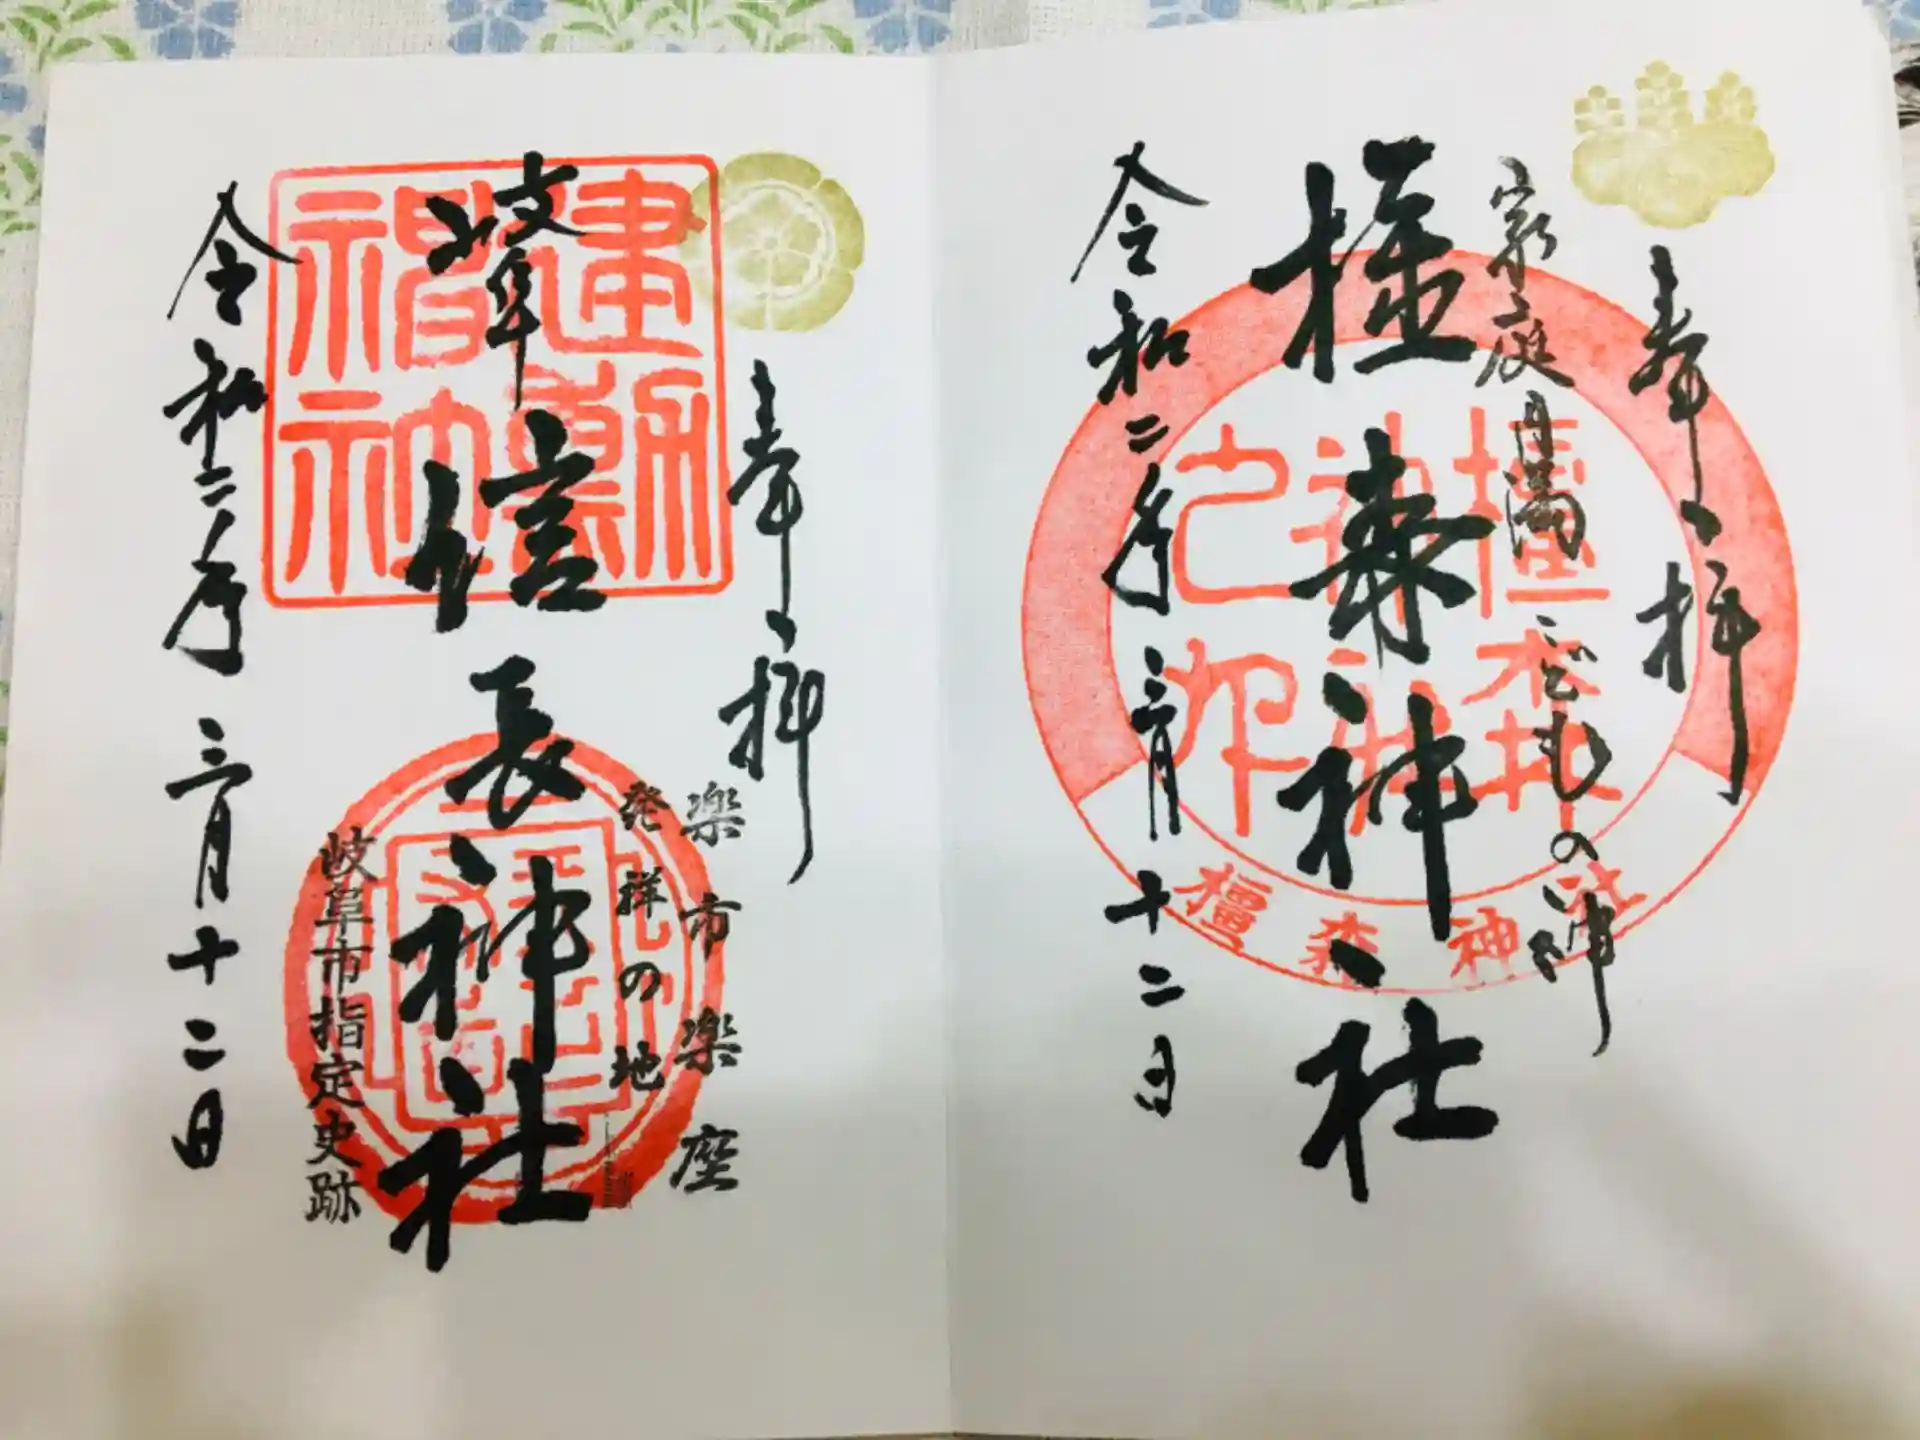 奉拝
家庭円満こどもの神
橿森神社
橿森神社之印
橿森神社
令和二年三月十二日
奉拝
楽市楽座
発祥の地
岐阜信長神社
建勲神社
岐阜市指定史跡
令和二年三月十二日